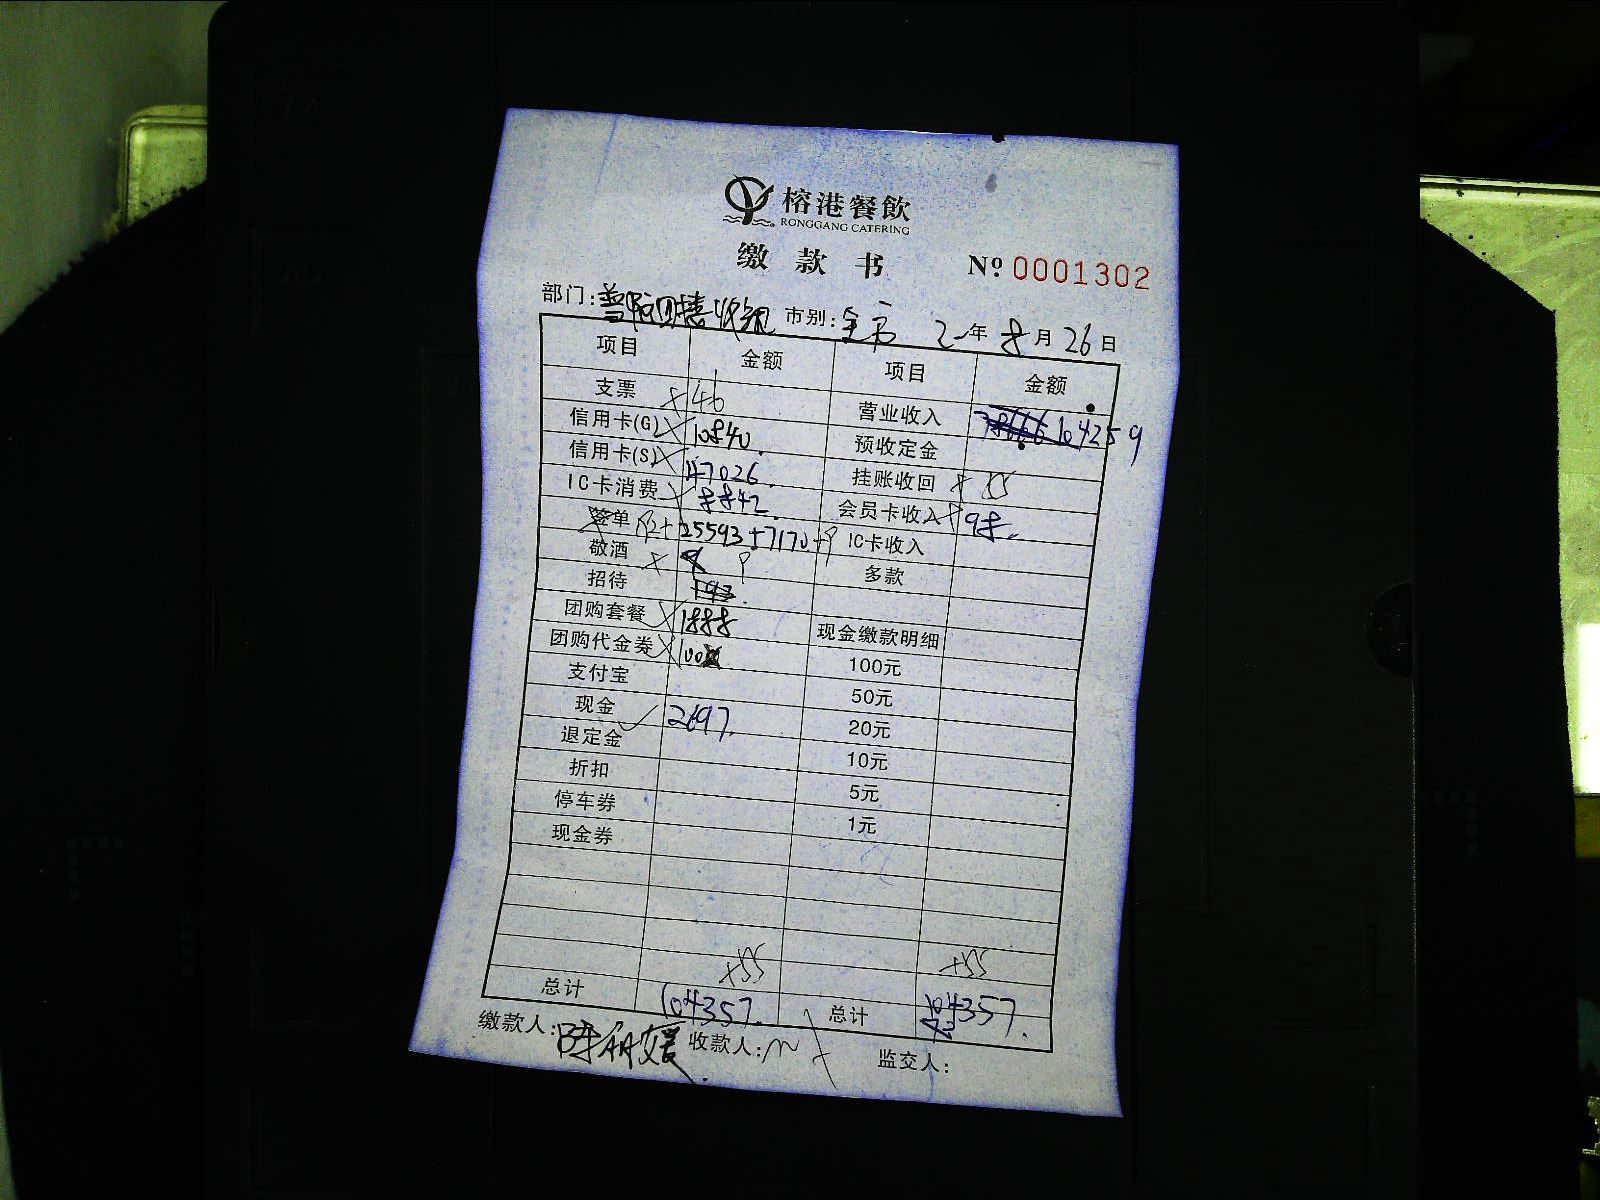 榕港餐飲
RONGGANG CATERING
缴款书 Nº 0001302
部门: 市别:全市 21年8月26日
项目 金额 项目 金额
支票 +46 营业收入 104259
信用卡(G) 10840. 预收定金
信用卡(S) 47026. 挂账收回 + 55
IC卡消费 8842. 会员卡收入 98.
签单 +25593+7170+ IC卡收入
敬酒 多款
招待 193.
团购套餐 1888 现金缴款明细
团购代金券 100 100元
支付宝 50元
现金 2697. 20元
退定金 10元
折扣 5元
停车券 1元
现金券
+55 +55
总计 104357. 总计 104357.
缴款人: 收款人: 监交人: